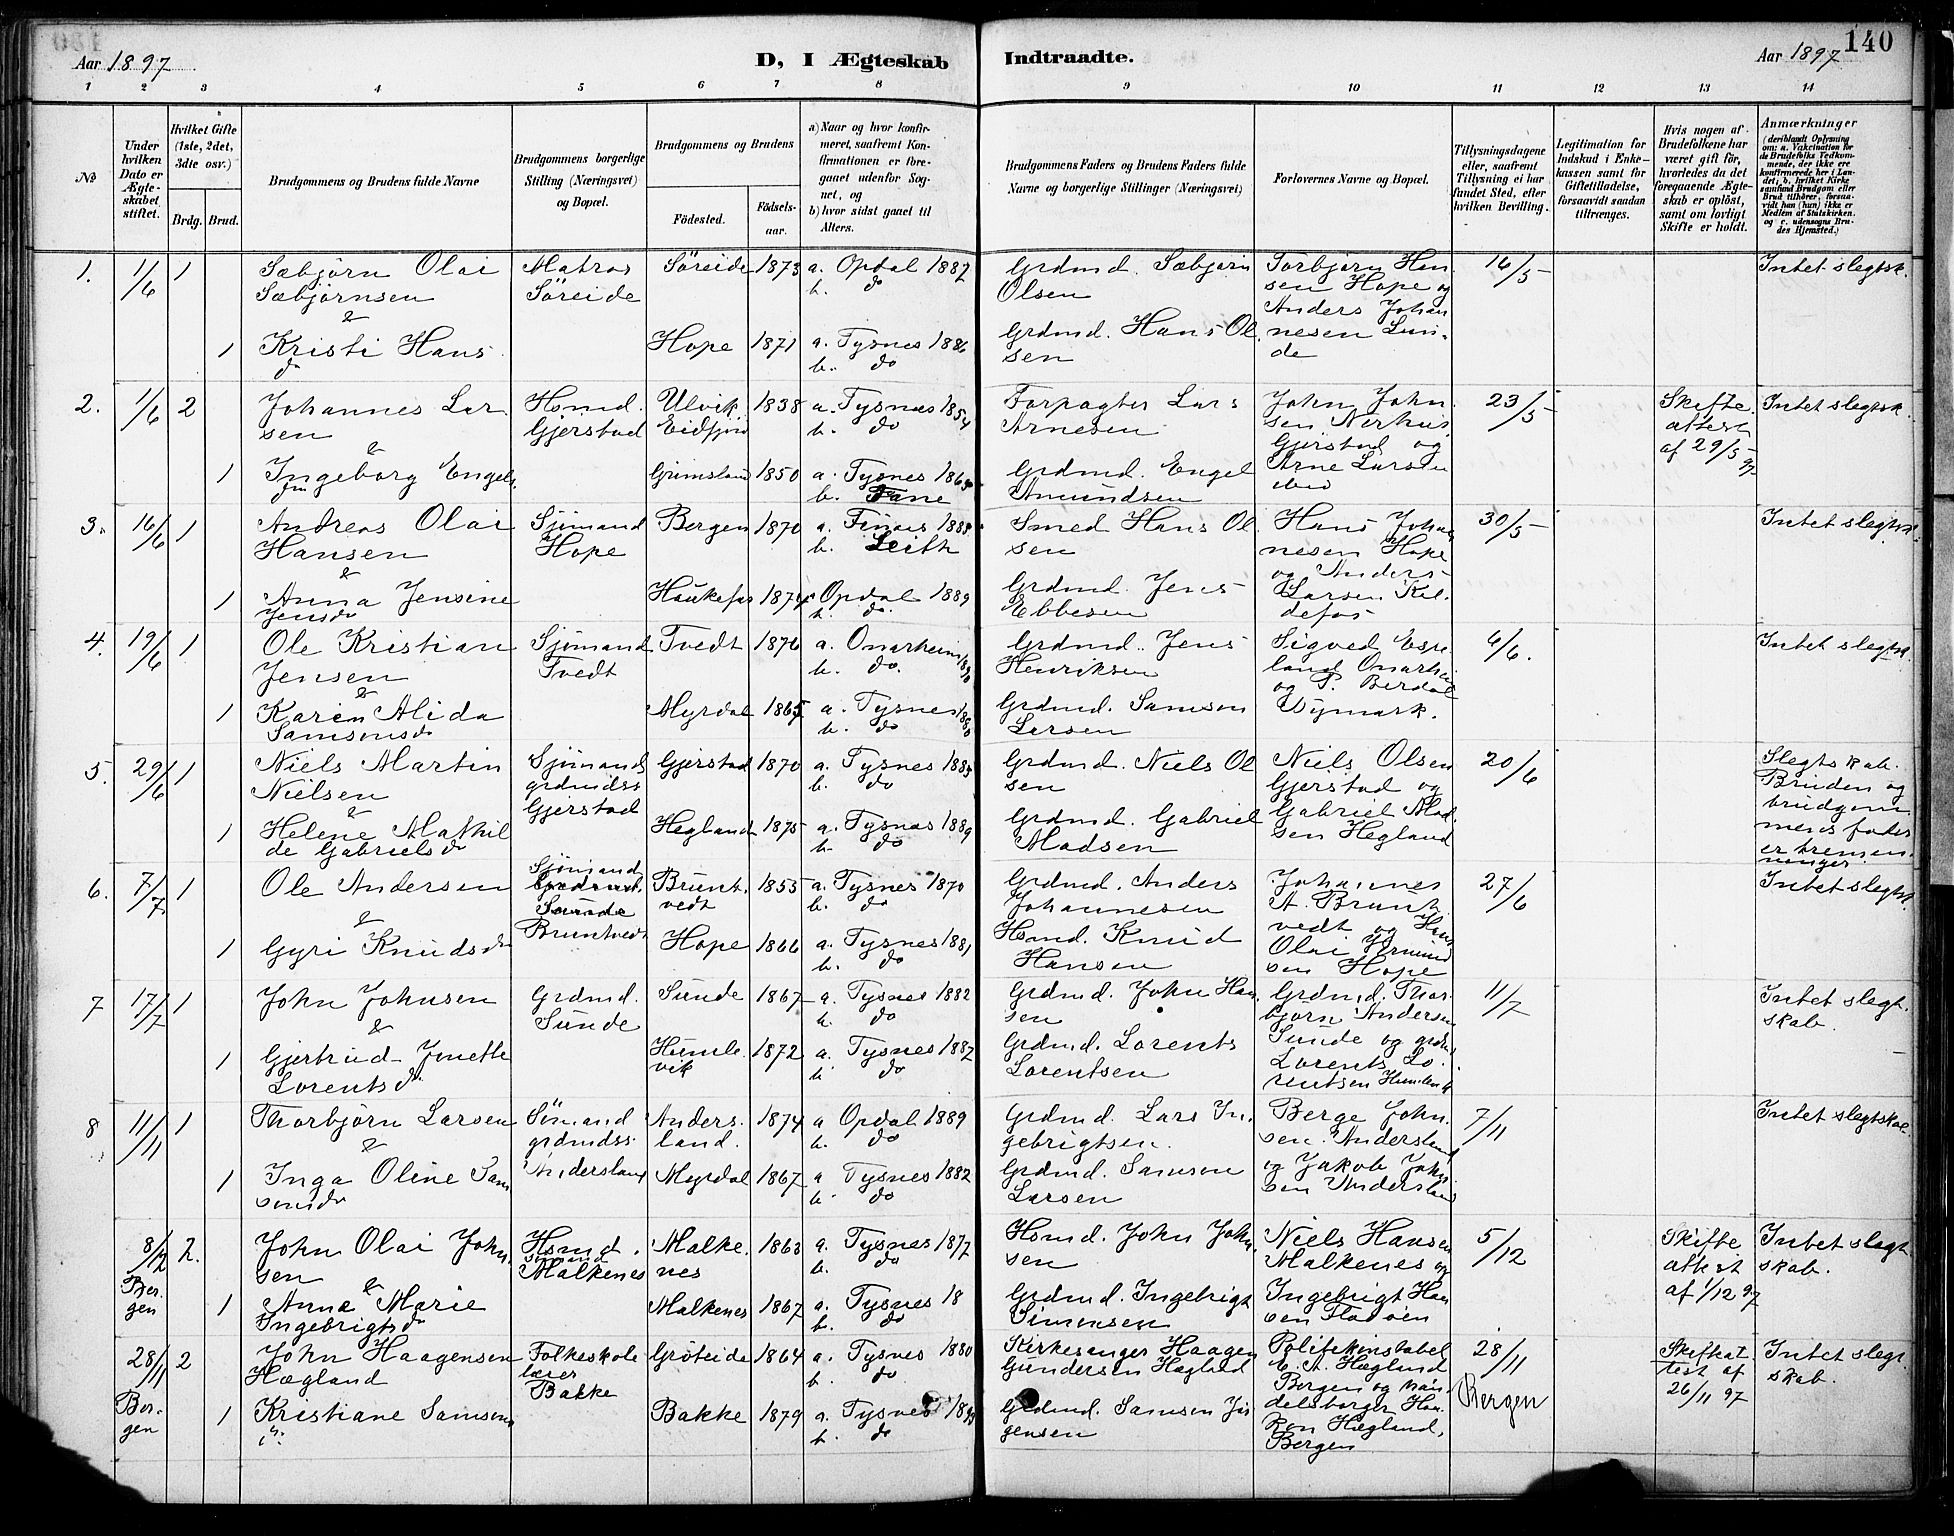 Aar 1897
D, I Ægteskab
Indtraadte.
Aar 1897
140
1
2
3
4
5
6
7
8
9
10
11
12
13
14
No
Under hvilken Dato er Ægteskabet stiftet.
Hvilket Gifte (1ste, 2det, 3die osv.)
Brdg.
Brud.
Brudgommens og Brudens fulde Navne
Brudgommens borgerlige Stilling (Næringsvei) og Bopæl.
Brudgommens og Brudens
Fødested.
Fødselsaar.
a) Naar og hvor konfirmeret, saafremt Konfirmationen er foregaaet udenfor Sognet, og
b) hvor sidst gaaet til Alters.
Brudgommens Faders og Brudens Faders fulde Navne og borgerlige Stillinger (Næringsvei)
Forlovernes Navne og Bopæl.
Tillysningsdagene eller, saafremt Tillysning ei har fundet Sted, efter hvilken Bevilling.
Legitimation for Indskud i Enkekassen samt for Giftetilladelse, forsaavidt saadan tiltrænges.
Hvis nogen af Brudefolkene har været gift før, hvorledes da det foregaaende Ægteskab er opløst, samt om lovligt Skifte er holdt.
Anmærkninger (deriblandt Oplysning om: a. Vakcination for de Brudefolks Vedkommende, der ikke ere konfirmerede her i Landet; b. hvilket Kirkesamfund Brudgom eller Brud tilhører, forsaavidt han (hun) ikke er Medlem af Statskirken. og c. udensogns Brudes Hjemsted.)
1. 1/6 1 Sæbjørn Olai Sæbjørnsen Matros Søreide Søreide 1873 a. Opdal 1887 b. do Grdmd. Sæbjørn Olsen Torbjørn Hansen Hope og Anders Johannesen Lunde 16/5 Intet slegtsk.
&
1 Kristi Hansd Hope 1871 a. Tysnes 1886 b. do Grdmd. Hans Olsen
2. 1/6 2 Johannes Larsen Hsmd. Gjerstad Ulvik Eidfjord 1838 a. Tysnes 1854 b. do Forpagter Lars Arnesen John Johnsen Nerhus Gjerstad og Arne Larsen ibid 23/5 Skifteattest af 29/5 97 Intet slegtsk.
&
1 Ingeborg Engels Grimsland 1850 a. Tysnes 1865 b. Fane Grdmd. Engel Amundsen
3. 16/6 1 Andreas Olai Hansen Sjømand Hope Bergen 1870 a. Finnes 1885 b. Leith Smed Hans Olsen Hans Johannesen Hope og Anders Larsen 30/5 Intet slegtsk.
&
1 Anna Jensine Jensd Haukefær 1874 a. Opdal 1889 b. do. Grdmd. Jens Ebbesen
4. 19/6 1 Ole Kristian Jensen Sjømand Tvedt Tvedt 1876 a. Onarheim 1890 b. do. Grdmd. Jens Henriksen Sigved Espeland Onarheim og P. Berdal Uglmark. 6/6. Intet slegtsk.
&
1 Karen Alida Samsonsd Myrdal 1865 a. Tysnes 1880 b. do Grdmd. Samson Larsen
5. 29/6 1 Niels Martin Nielsen Sjømand grdmdss Gjerstad Gjerstad 1870 a. Tysnes 1885 b. do Grdmd. Niels Olsen Niels Olsen Gjerstad og Gabriel Madsen Hegland 20/6 Slegtskab. Bruden og brudgommens fader er tremenninger.
&
1 Helene Mathilde Gabrielsd Hegland 1875 a. Tysnes 1889 b. do Grdmd. Gabriel Madsen
6. 7/7 1 Ole Andersen Sjømand Bruntvedt Bruntvedt 1855 a. Tysnes 1870 b. do Grdmd. Anders Johannesen Johannes A. Bruntvedt og Hans Olai Hope 27/6 Intet slegtsk.
&
1 Gyri Knudsd Hope 1866 a. Tysnes 1881 b. do Hsmd. Knud Hansen
7 17/7 1 John Johnsen Grdmd. Sunde Sunde 1867 a. Tysnes 1882 b. do Grdmd. John Hansen Grdmd. Thorbjørn Andersen Sunde og grdmd Lorents Lorentsen Humlevik 11/7 Intet slegtskab.
&
1 Gjertrud Jonette Lorentsd. Humlevik 1872 a. Tysnes 1887 b. do Grdmd. Lorents Lorentsen
8 11/11 1 Thorbjørn Larsen Sømand grdmdss. Andersland Andersland. 1874 a Opdal 1889 b. do Grdmd. Lars Ingebrigtsen. Berge Johnsen Andersland og Jakob Johnsen Andersland 7/11 Intet slegtskab.
&
1 Inga Oline Samsonsd Myrdal 1867 a Tysnes 1882 b. do Grdmd. Samson Larsen
8/12 Bergen 2. John Olai Johnsen Hsmd. sømand Malkenes Malkenes 1863 a. Tysnes 1877 b. do Hsmd. John Johnsen Niels Hansen Malkenes og Ingebrigt Hansen Fladøen 5/12 Skifteattest af 1/12 97 Intet slegtskab.
&
1 Anna Marie Ingebrigtsd Malkenes 1867 a. Tysnes 18 b. do Grdmd. Ingebrigt Simonsen
28/11 Bergen 2 John Haagensen Hægland Folkeskolelærer Bakke Grøteide 1864 a. Tysnes 1880 b. do Kirkesanger Haagen Gundersen Hægland Politikonstabel E. A. Hægland Bergen og Handelsborger Haakon Hægland, Bergen 28/11 Bergen Skifteattest af 26/11 97 Intet slegtskab.
1 Kristiane Samsons Bakke 1879 a. Tysnes b. do Grdmd. Samson Jørgensen